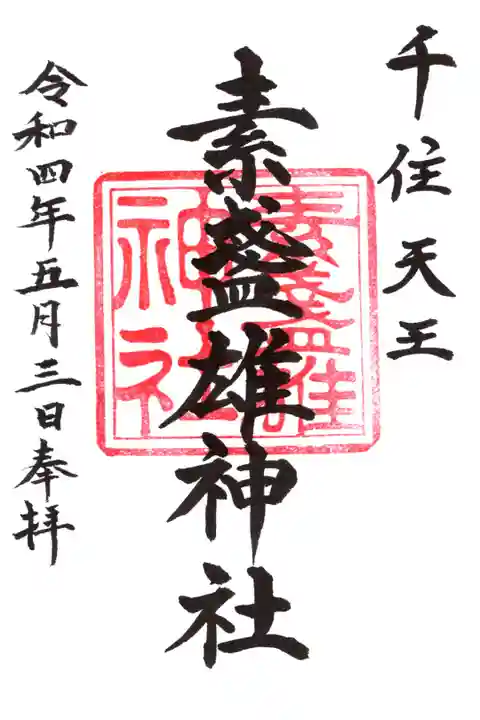 千住天王
素盞雄神社
素盞雄
神社
令和四年五月三日奉拝